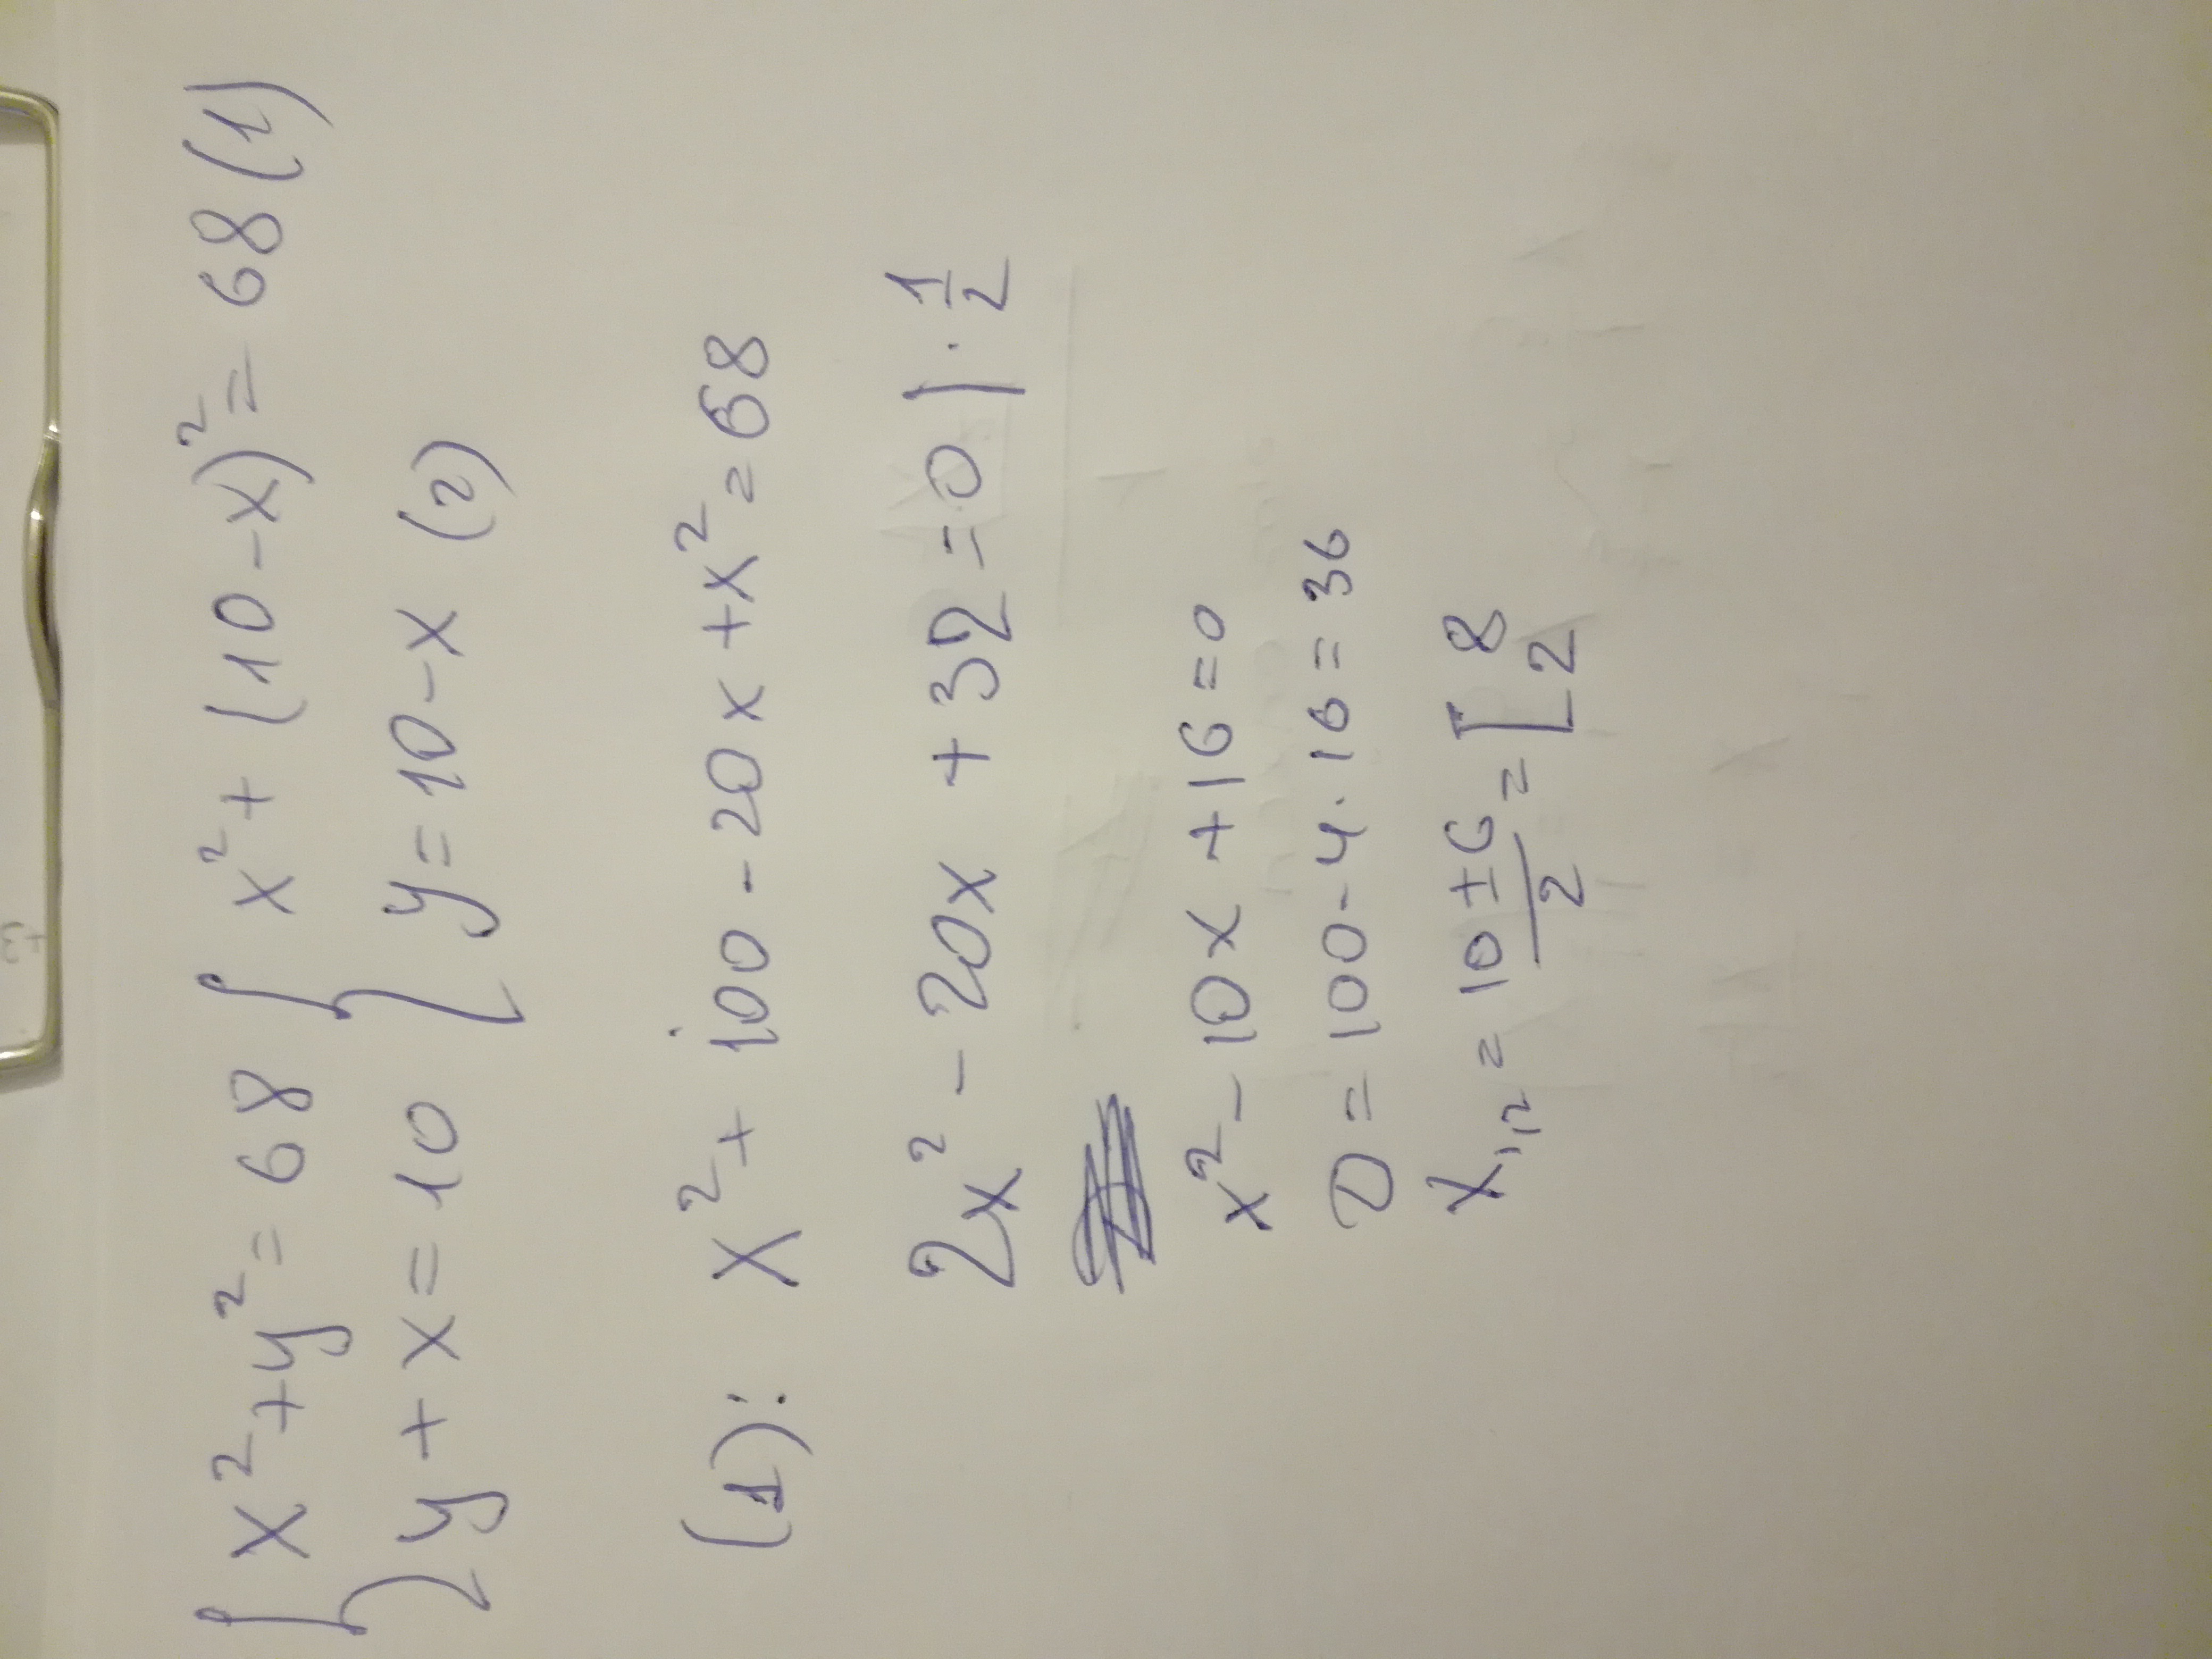 { x² + y² = 68 { x² + (10 - x)² = 68 (1)
y + x = 10 y = 10 - x (2)
(1): x² + 100 - 20x + x² = 68
2x² - 20x + 32 = 0 | · 1/2
x² - 10x + 16 = 0
D = 100 - 4 · 16 = 36
x₁,₂ = (10 ± 6)/2 = [ 8
2